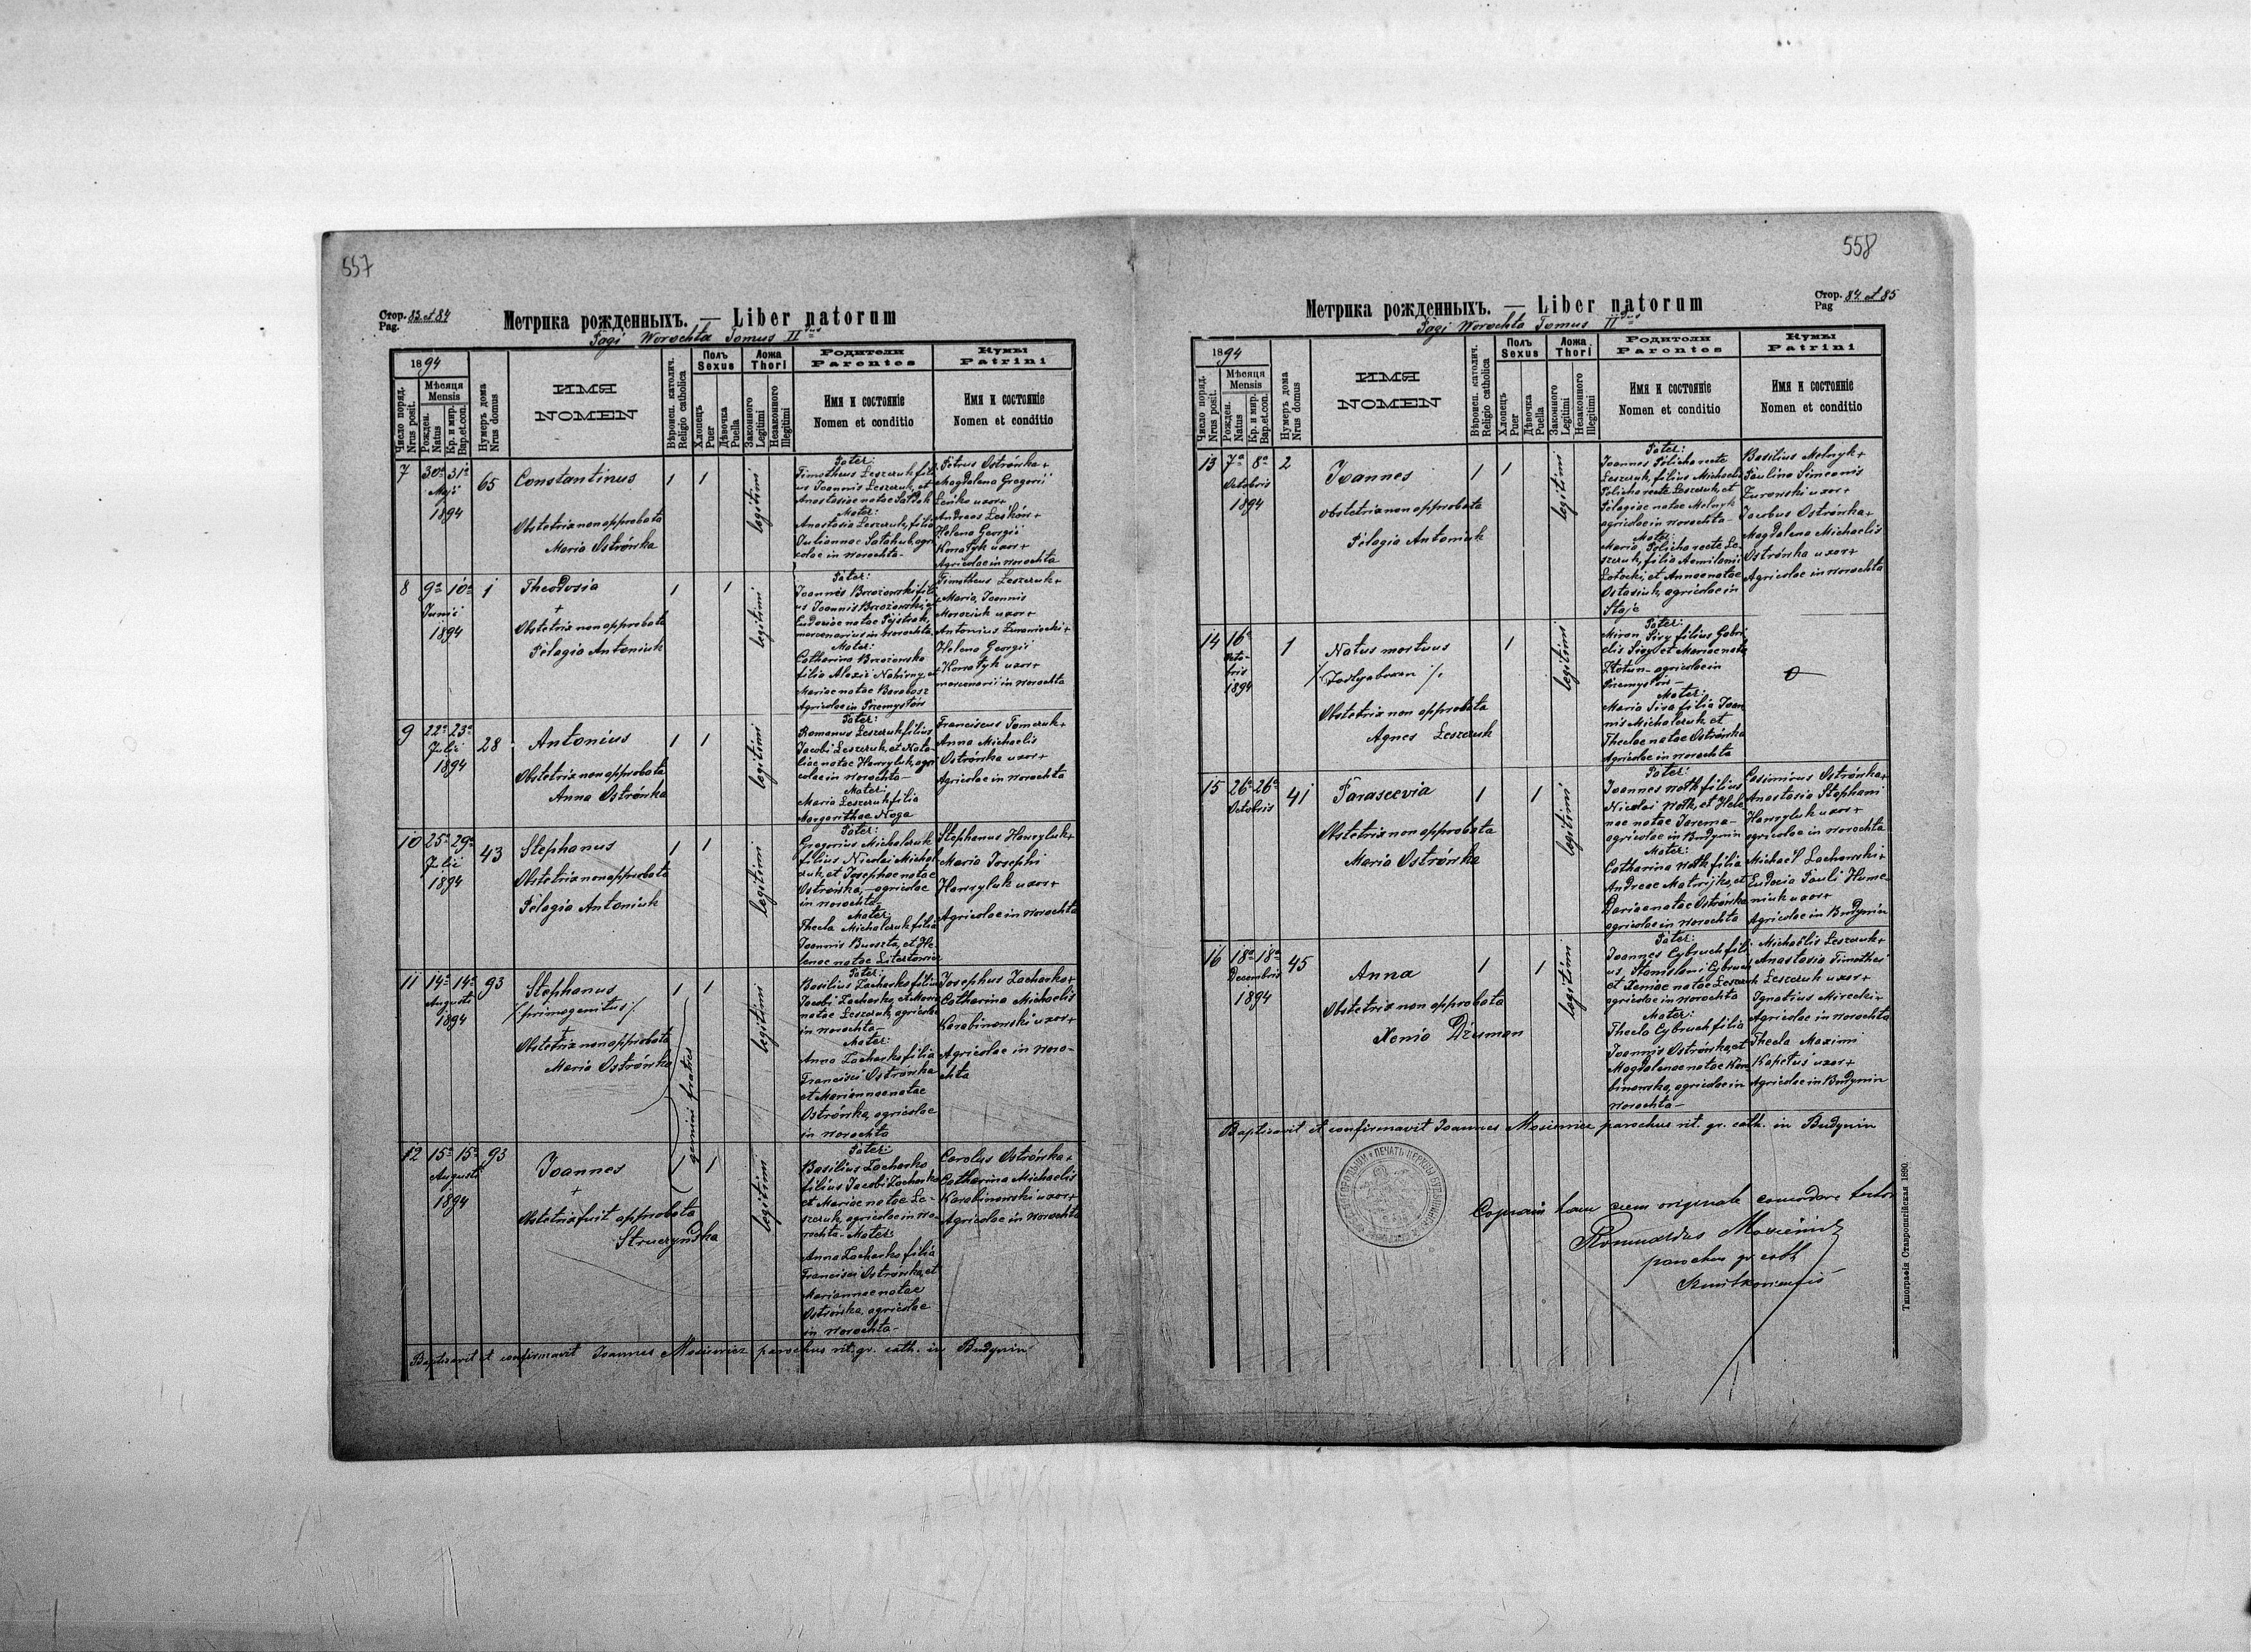 557
Стор. 83 et 84
Pag.
Метрика рожденныхъ. — Liber natorum
Pagi Worochta Tomus II dus
1894
Число поряд.
Nrus posit.
Мѣсяця
Mensis
Рожден.
Natus
Кр. и мир.
Bap. et con.
Нумеръ дома
Nrus domus
ИМЯ
NOMEN
Вѣроисп. католич.
Religio catholica
Полъ
Sexus
Хлопецъ
Puer
Дѣвочка
Puella
Ложа
Thori
Законного
Legitimi
Незаконного
Illegitimi
Родители
Parentes
Имя и состоянiе
Nomen et conditio
Кумы
Patrini
Имя и состоянiе
Nomen et conditio
7 30a 31a
Maji
1894
65
Constantinus
Obstetrix non approbata
Maria Ostrówka
1 1
legitimi
Pater:
Timotheus Leszczuk fili
us Joannis Leszczuk, et
Anastasiae natae
Mater:
Anastasia Leszczuk, filia
Juliannae agri
colae in Worochta-
Petrus Ostrówka +
Magdalena Gregorii
uxor +
Andreas +
Helena Georgii
uxor +
Agricolae in Worochta
8 9a 10a
Junii
1894
1
Theodosia
+
Obstetrix non approbata
Pelagia Antoniuk
1 1
legitimi
Pater:
Joannes Brzozowski fili
us Joannis Brzozowski, et
Eudociae natae
mercenarius in Worochta
Mater:
Catharina Brzozowska
filia Alexii et
Mariae natae
Agricolae in Przemysłów
Timotheus Leszczuk +
Maria, Joannis
uxor +
Antonius +
Helena Georgii
uxor +
mercenarii in Worochta
9 22a 23a
Julii
1894
28
Antonius
Obstetrix non approbata
Anna Ostrówka
1 1
legitimi
Pater:
Romanus Leszczuk filius
Jacobi Leszczuk, et Nata-
liae natae Hawryluk, agri
colae in Worochta-
Mater:
Maria Leszczuk filia
Margarithae Noga
Franciscus Tomczuk +
Anna Michaelis
Ostrówka uxor +
Agricolae in Worochta
10 25a 29a
Julii
1894
43
Stephanus
Obstetrix non approbata
Pelagia Antoniuk
1 1
legitimi
Pater:
Gregorius Michalczuk
filius Nicolai Michal
czuk, et Josephae natae
Ostrówka, agricolae
in Worochta-
Mater:
Thecla Michalczuk filia
Joannis et He
lenae natae
Stephanus Hawryluk +
Maria Josephi
Hawryluk uxor +
Agricolae in Worochta
11 14a 14a
Augusti
1894
93
Stephanus
/primogenitus/
+
Obstetrix non approbata
Maria Ostrówka
1 1
gemini fratres
legitimi
Pater:
Basilius Zacharko filius
Jacobi Zacharko, et Mariae
natae Leszczuk, agricolae
in Worochta-
Mater:
Anna Zacharko filia
Francisci Ostrówka
et Mariannae natae
Ostrówka, agricolae
in Worochta
Josephus Zacharko +
Catharina Michaelis
Karabinowski uxor +
Agricolae in Woro-
chta
12 15a 15a
Augusti
1894
93
Joannes
+
Obstetrix fuit approbata
Struczyńska
1 1
legitimi
Pater:
Basilius Zacharko
filius Jacobi Zacharko
et Mariae natae Le-
szczuk, agricolae in Wo-
rochta- Mater:
Anna Zacharko filia
Francisci Ostrówka, et
Mariannae natae
Ostrówka, agricolae
in Worochta-
Carolus Ostrówka +
Catharina Michaelis
Karabinowski uxor +
Agricolae in Worochta
Baptisavit et confirmavit Joannes Mosiewicz parochus rit. gr. cath. in Budynin
558
Стор. 84 et 85
Pag
Метрика рожденныхъ. — Liber natorum
Pagi Worochta Tomus II dus
1894
Число поряд.
Nrus posit.
Мѣсяця
Mensis
Рожден.
Natus
Кр. и мир.
Bap. et con.
Нумеръ дома
Nrus domus
ИМЯ
NOMEN
Вѣроисп. католич.
Religio catholica
Полъ
Sexus
Хлопецъ
Puer
Дѣвочка
Puella
Ложа
Thori
Законного
Legitimi
Незаконного
Illegitimi
Родители
Parentes
Имя и состоянiе
Nomen et conditio
Кумы
Patrini
Имя и состоянiе
Nomen et conditio
13 7a 8a
Octobris
1894
2
Joannes
obstetrix non approbata
Pelagia Antoniuk
1 1
legitimi
Pater:
Joannes Policha recte
Leszczuk, filius Michaelis
Policha recte Leszczuk, et
Pelagiae natae Melnyk
agricolae in Worochta-
Mater:
Maria Policha recte Le-
szczuk, filia Aemiliani
et Annae natae
Ostasiuk, agricolae in
Staje
Basilius Melnyk +
Paulina Simeonis
Zurowski uxor +
Jacobus Ostrówka +
Magdalena Michaelis
Ostrówka uxor +
Agricolae in Worochta
14 16a
Octo-
bris
1894
1
Natus mortuus
Obstetrix non approbata
Agnes Leszczuk
1
legitimi
Pater:
Miron filius Gabri
elis et Mariae natae
agricolae in
Przemysłów-
Mater:
Maria filia Joan
nis Michalczuk et
Theclae natae Ostrówka
Agricolae in Worochta
15 26a 26a
Octobris
41
Parascevia
Obstetrix non approbata
Maria Ostrówka
1 1
legitimi
Pater:
Joannes Wotk filius
Nicolai Wotk, et Hele
nae natae Jarema-
agricolae in Budynin
Mater:
Catharina Wotk filia
Andreae et
Dariae natae Ostrówka
agricolae in Worochta
Casimirus Ostrówka +
Anastasia Stephani
Hawryluk uxor +
agricolae in Worochta
Michaël Lachowski +
Eudocia Pauli Hume-
niuk uxor +
Agricolae in Budynin
16 18a 18a
Decembris
1894
45
Anna
Obstetrix non approbata
Xenia Dziuman
1 1
legitimi
Pater:
Joannes Cybruch fili
us Stanislai Cybruch
et Xeniae natae Leszczuk
agricolae in Worochta
Mater:
Thecla Cybruch filia
Joannis Ostrówka, et
Magdalenae natae Kara
binowska, agricolae in
Worochta-
Michaëlis Leszczuk +
Anastasia Timothei
Leszczuk uxor +
Ignatius Mirecki +
Agricolae in Worochta
Thecla Maximi
uxor +
Agricolae in Budynin
Baptisavit et confirmavit Joannes Mosiewicz parochus rit. gr. cath. in Budynin
Copiam hanc cum originale concordare testor
Romualdus
parochus gr. cath.
Типографiя Ставропигiйская 1890.